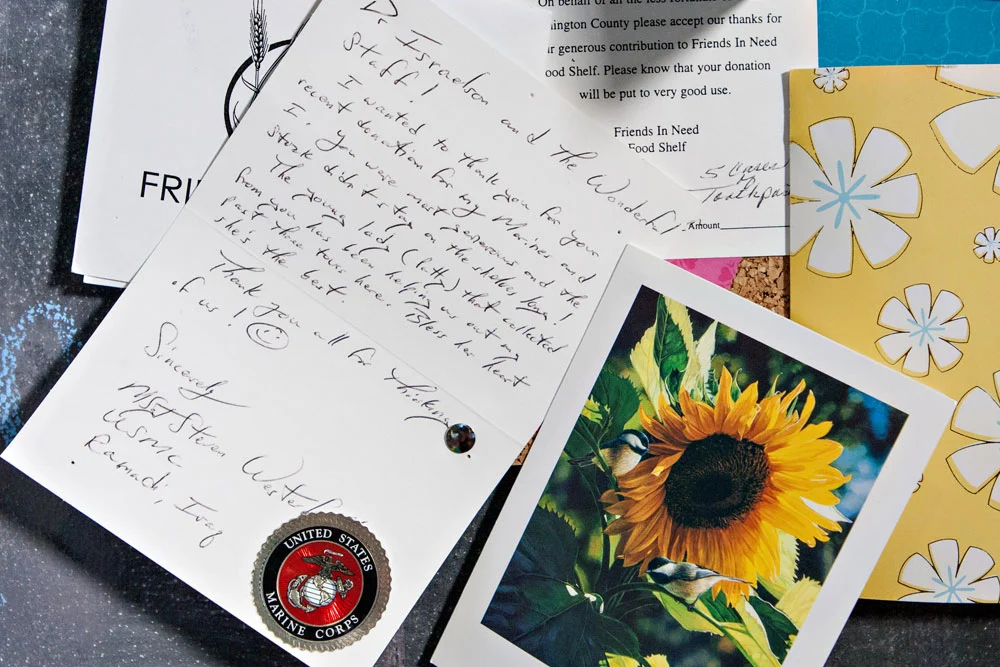 On behalf of all the less fortunate
ington County please accept our thanks for
ur generous contribution to Friends In Need
ood Shelf. Please know that your donation
will be put to very good use.
Friends In Need
Food Shelf
5 Cases
Toothpaste
Amount
FRI
Dr Israelson and the Wonderful
Staff!
I wanted to thank you for your
recent donation for my Marines and
I. You were most generous and the
stock didn't stay on the shelves long!
The young lady (Patty) that collected
from you has been helping us out my
past three tours here. Bless her heart
she's the best.
Thank you all for thinking
of us!
Sincerely
MSgt Steven
USMC
Ramadi, Iraq
UNITED STATES
MARINE CORPS